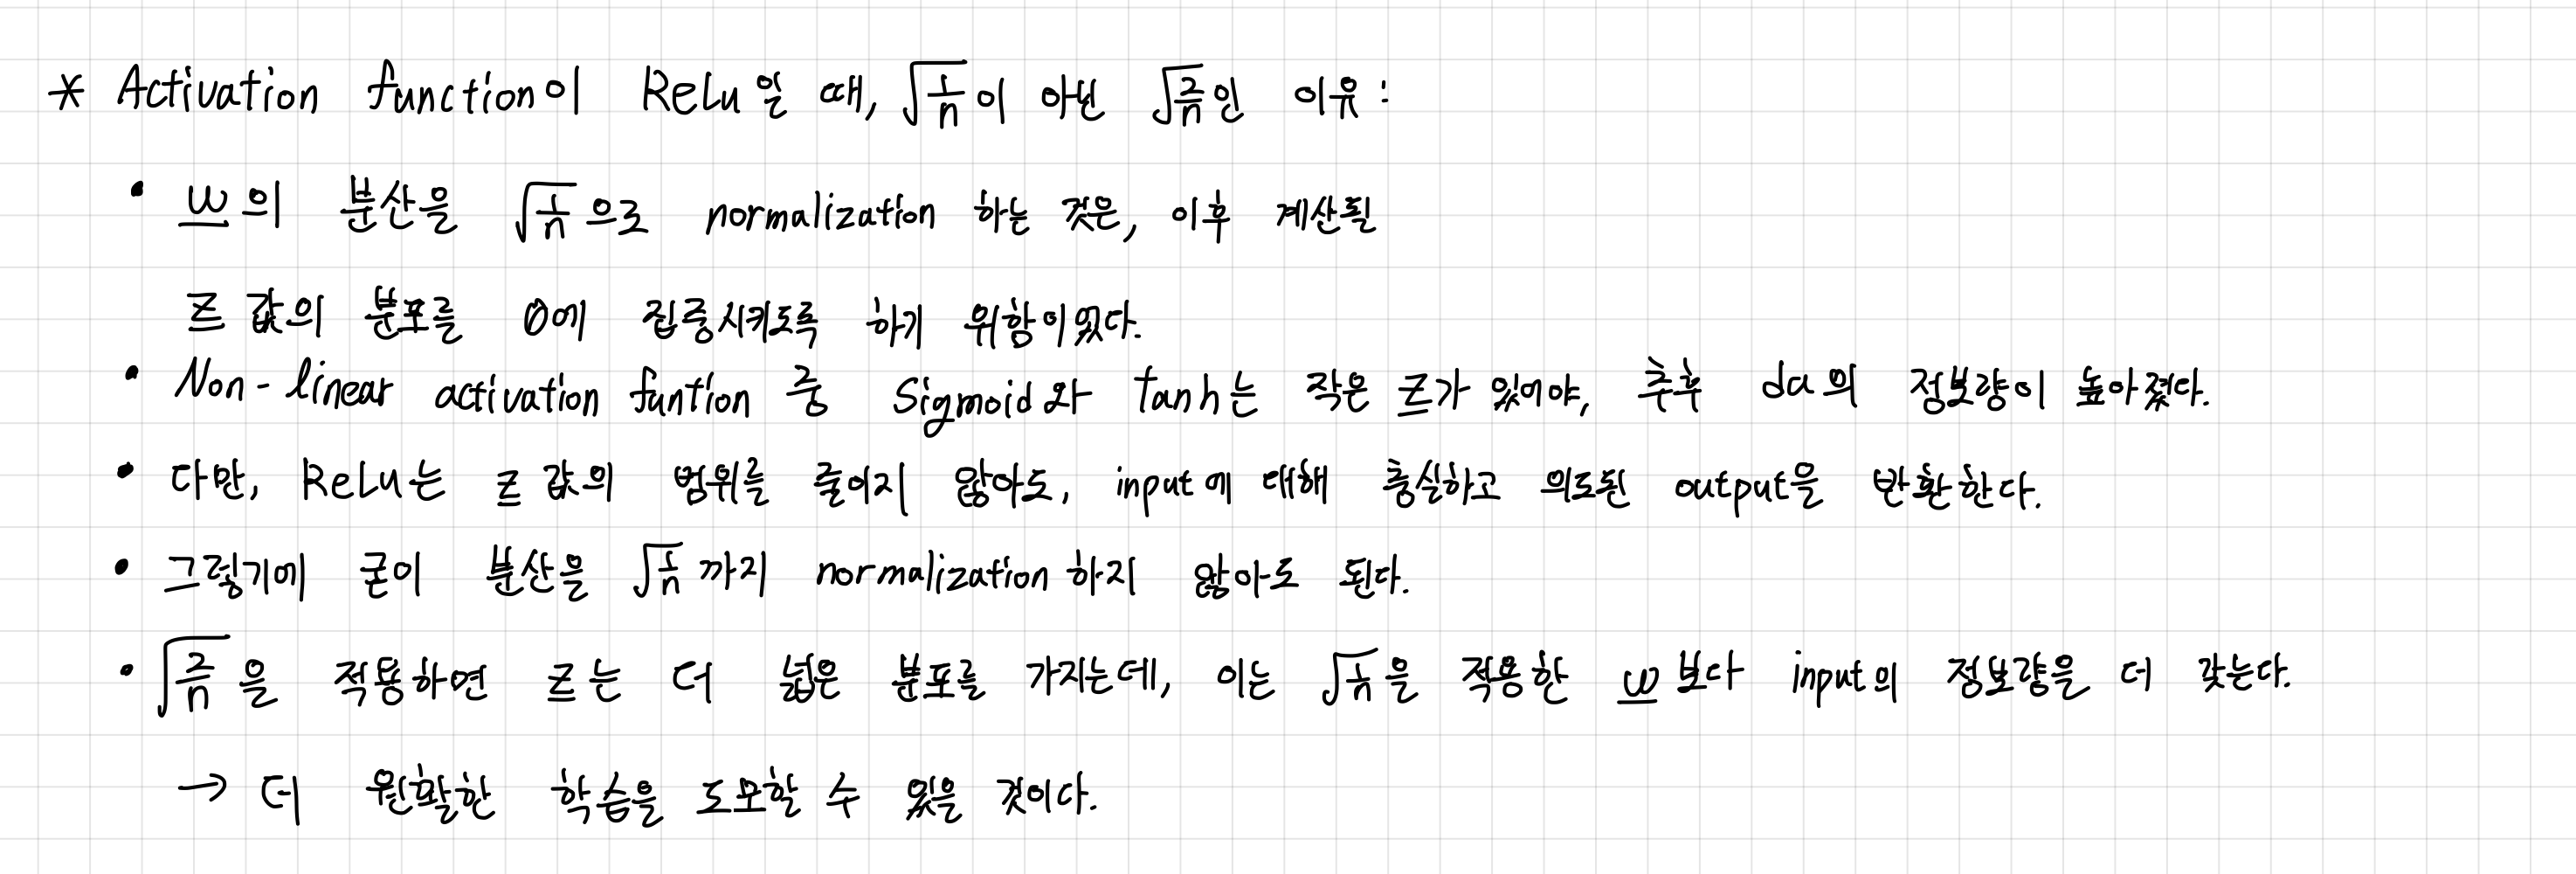 * Activation function이 ReLu일 때, √(1/n)이 아닌 √(2/n)인 이유 :
• w의 분산을 √(1/n)으로 normalization 하는 것은, 이후 계산될
z 값의 분포를 0에 집중시키도록 하기 위함이었다.
• Non-linear activation funtion 중 Sigmoid와 tanh는 작은 z가 있어야, 추후 da의 정보량이 높아졌다.
• 다만, ReLu는 z 값의 범위를 줄이지 않아도, input에 대해 충실하고 의도된 output을 반환한다.
• 그렇기에 굳이 분산을 √(1/n)까지 normalization하지 않아도 된다.
• √(2/n)을 적용하면 z는 더 넓은 분포를 가지는데, 이는 √(1/n)을 적용한 w보다 input의 정보량을 더 갖는다.
→ 더 원활한 학습을 도모할 수 있을 것이다.